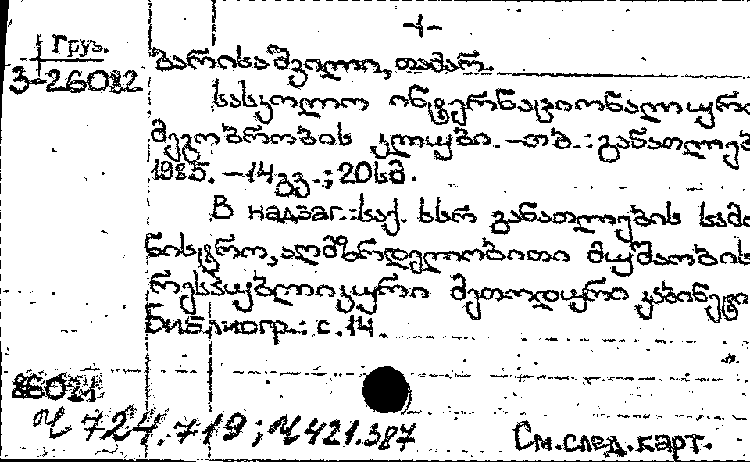 -1-
Груз.
3-26082
ბარისაშვილი, თამარ.
სასკოლო ინტერნაციონალური
მეგობრობის კლუბი. -თბ.: განათლებ
1985. -14გვ.; 20სმ.
В надзаг.: საქ. სსრ განათლების სამი
ნისტრო, აღმზრდელობითი მუშაობის
რესპუბლიკური მეთოდური კაბინეტი
Библиогр.: с. 14.
86021
Ч 724.719; Ч 421.387
См. след. карт.